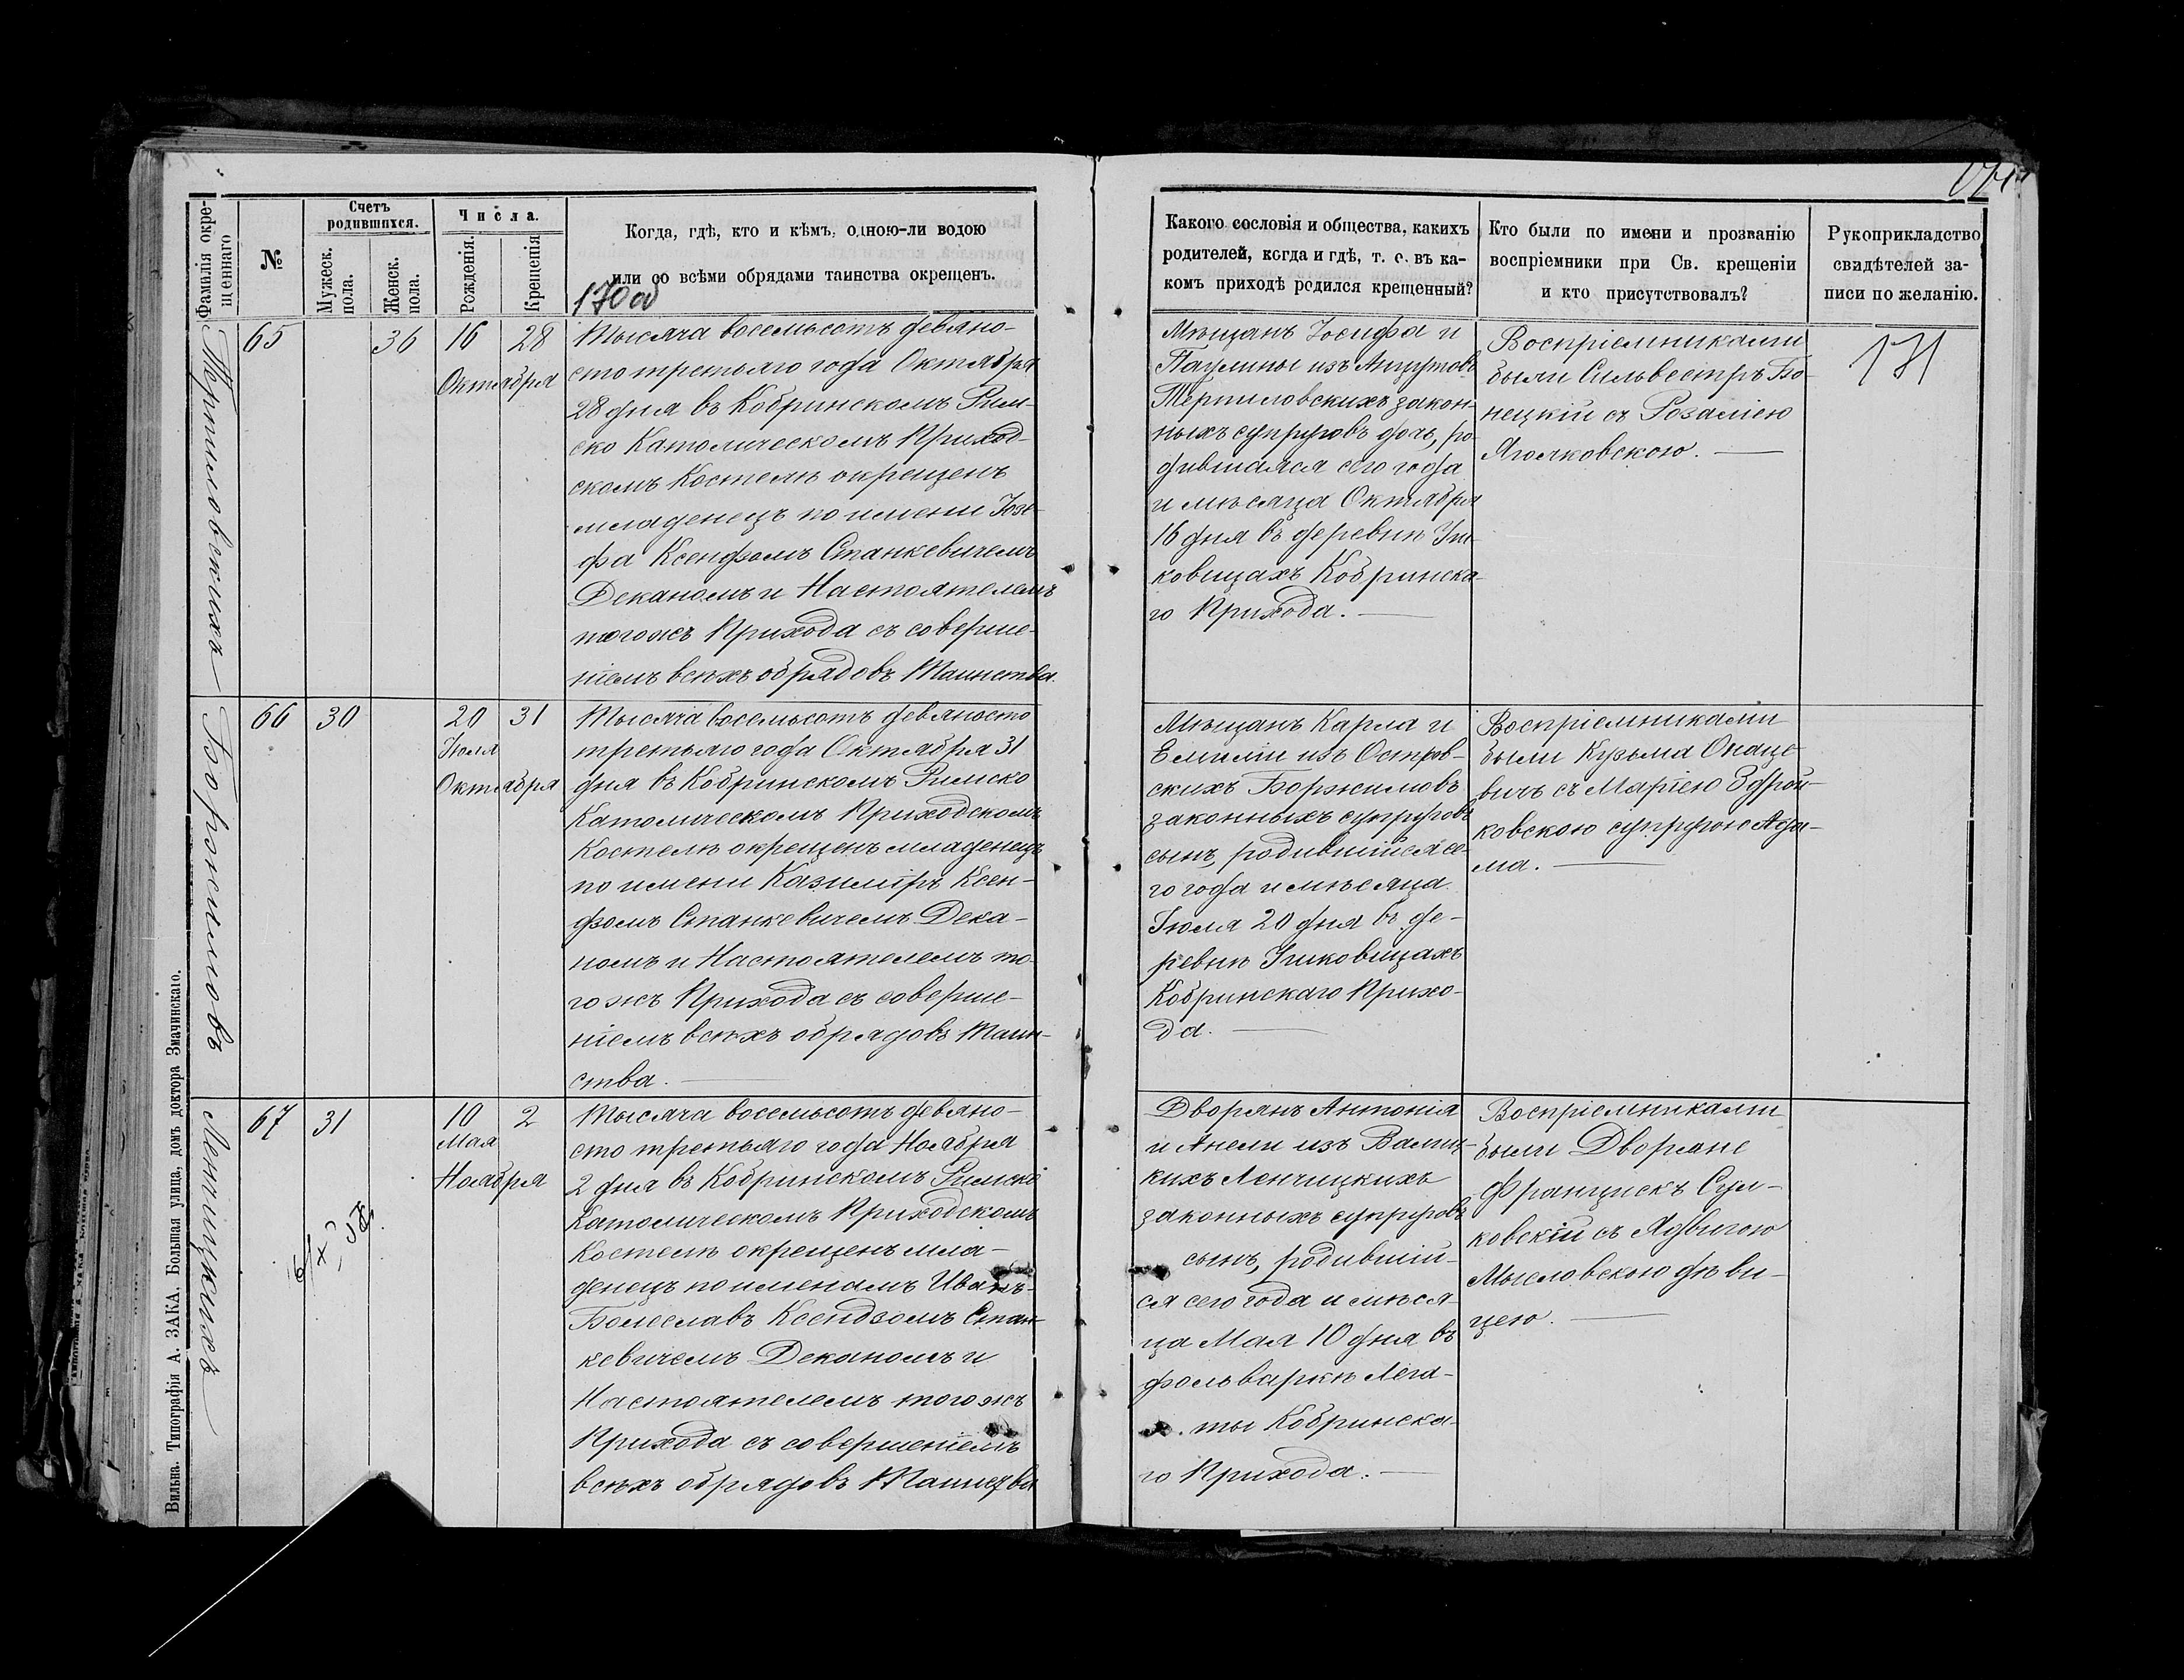 Фамилія окре-
щеннаго
№
Счетъ
родившихся.
Мужеск.
пола.
Женск.
пола.
Числа.
Рожденія.
Крещенія
Когда, гдѣ, кто и кѣмъ, одною-ли водою
или со всѣми обрядами таинства окрещенъ.
170 об
65
36
16
28
Октября
Тысяча восемьсотъ девяно-
сто третьяго года Октября
28 дня въ Кобринскомъ Рим-
ско Католическомъ Приход-
скомъ Костелѣ окрещенъ
младенецъ по имени Юзе-
фа Ксендзомъ Станкевичемъ
Деканомъ и Настоятелемъ
тогожъ Прихода съ соверше-
ніемъ всѣхъ обрядовъ Таинства.
Боржимовъ
66
30
20
31
Іюля
Октября
Тысяча восемьсотъ девяносто
третьяго года Октября 31
дня въ Кобринскомъ Римско
Католическомъ Приходскомъ
Костелѣ окрещенъ младенецъ
по имени Казиміръ Ксен-
дзомъ Станкевичемъ Дека-
номъ и Настоятелемъ то-
гожъ Прихода съ соверше-
ніемъ всѣхъ обрядовъ Таин-
ства.
Ленчицкихъ
67
31
10
2
Мая
Ноября
Тысяча восемьсотъ девяно-
сто третьяго года Ноября
2 дня въ Кобринскомъ Римско
Католическомъ Приходскомъ
Костелѣ окрещенъ мла-
денецъ по именамъ Иванъ-
Болеславъ Ксендзомъ Стан-
кевичемъ Деканомъ и
Настоятелемъ тогожъ
Прихода съ совершеніемъ
всѣхъ обрядовъ Таинства
Вильна. Типографія А. ЗАКА. Большая улица, домъ доктора Змачинскаго.
Какого сословія и общества, какихъ
родителей, когда и гдѣ, т. е. въ ка-
комъ приходѣ родился крещенный?
Кто были по имени и прозванію
воспріемники при Св. крещеніи
и кто присутствовалъ?
Рукоприкладство
свидѣтелей за-
писи по желанію.
Мѣщанъ Іосифа и
Паулины изъ
закон-
ныхъ супруговъ дочь, ро-
дившаяся сего года
и мѣсяца Октября
16 дня въ деревни
Кобринска-
го Прихода.
Воспріемниками
были Сильвестръ Бо-
нецкій съ Розаліею
171
Мѣщанъ Карла и
Емиліи изъ Остров-
скихъ Боржимовъ
законныхъ супруговъ
сынъ, родившійся се-
го года и мѣсяца
Іюля 20 дня въ де-
ревнѣ
Кобринскаго Прихо-
да.
Воспріемниками
были Кузьма
съ Маріею Здрой-
ковскою супругою Ада-
ма.
Дворянъ Антонія
и Анели изъ
Ленчицкихъ
законныхъ супруговъ
сынъ, родившій-
ся сего года и мѣся-
ца Мая 10 дня въ
фольваркѣ Лега-
ты Кобринска-
го Прихода.
Воспріемниками
были Дворяне
Францискъ Сул-
ковскій съ Ядвигою
Мысловскою дѣви-
цею.